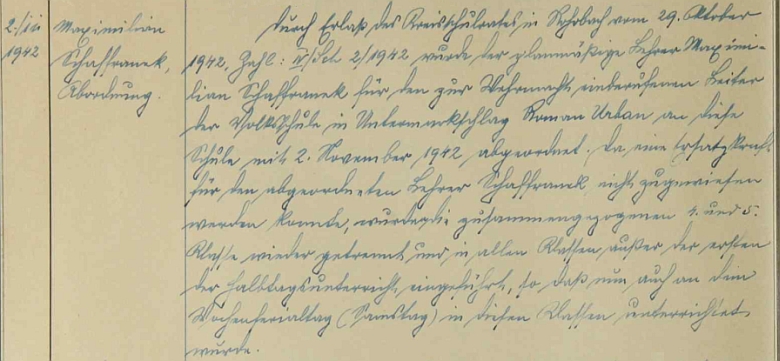 2./XI. 1942
Maximilian
Schaffranek,
Abordnung.
Durch Erlaß des Kreisschulrates in Rohrbach vom 29. Oktober
1942, Zahl: 2/1942 wurde der planmäßige Lehrer Maximi-
lian Schaffranek für den zur Wehrmacht einberufenen Leiter
der Volksschule in Untermarkschlag Roman Urban an diese
Schule mit 2. November 1942 abgeordnet. Da eine Ersatzkraft
für den abgeordneten Lehrer Schaffranek nicht zugewiesen
werden konnte, wurden die zusammengezogenen und 5.
Klasse wieder getrennt und in allen Klassen außer der ersten
der Halbtagsunterricht eingeführt, so daß nun auch an dem
Wochenferialtag (Samstag) in diesen Klassen unterrichtet
wurde.